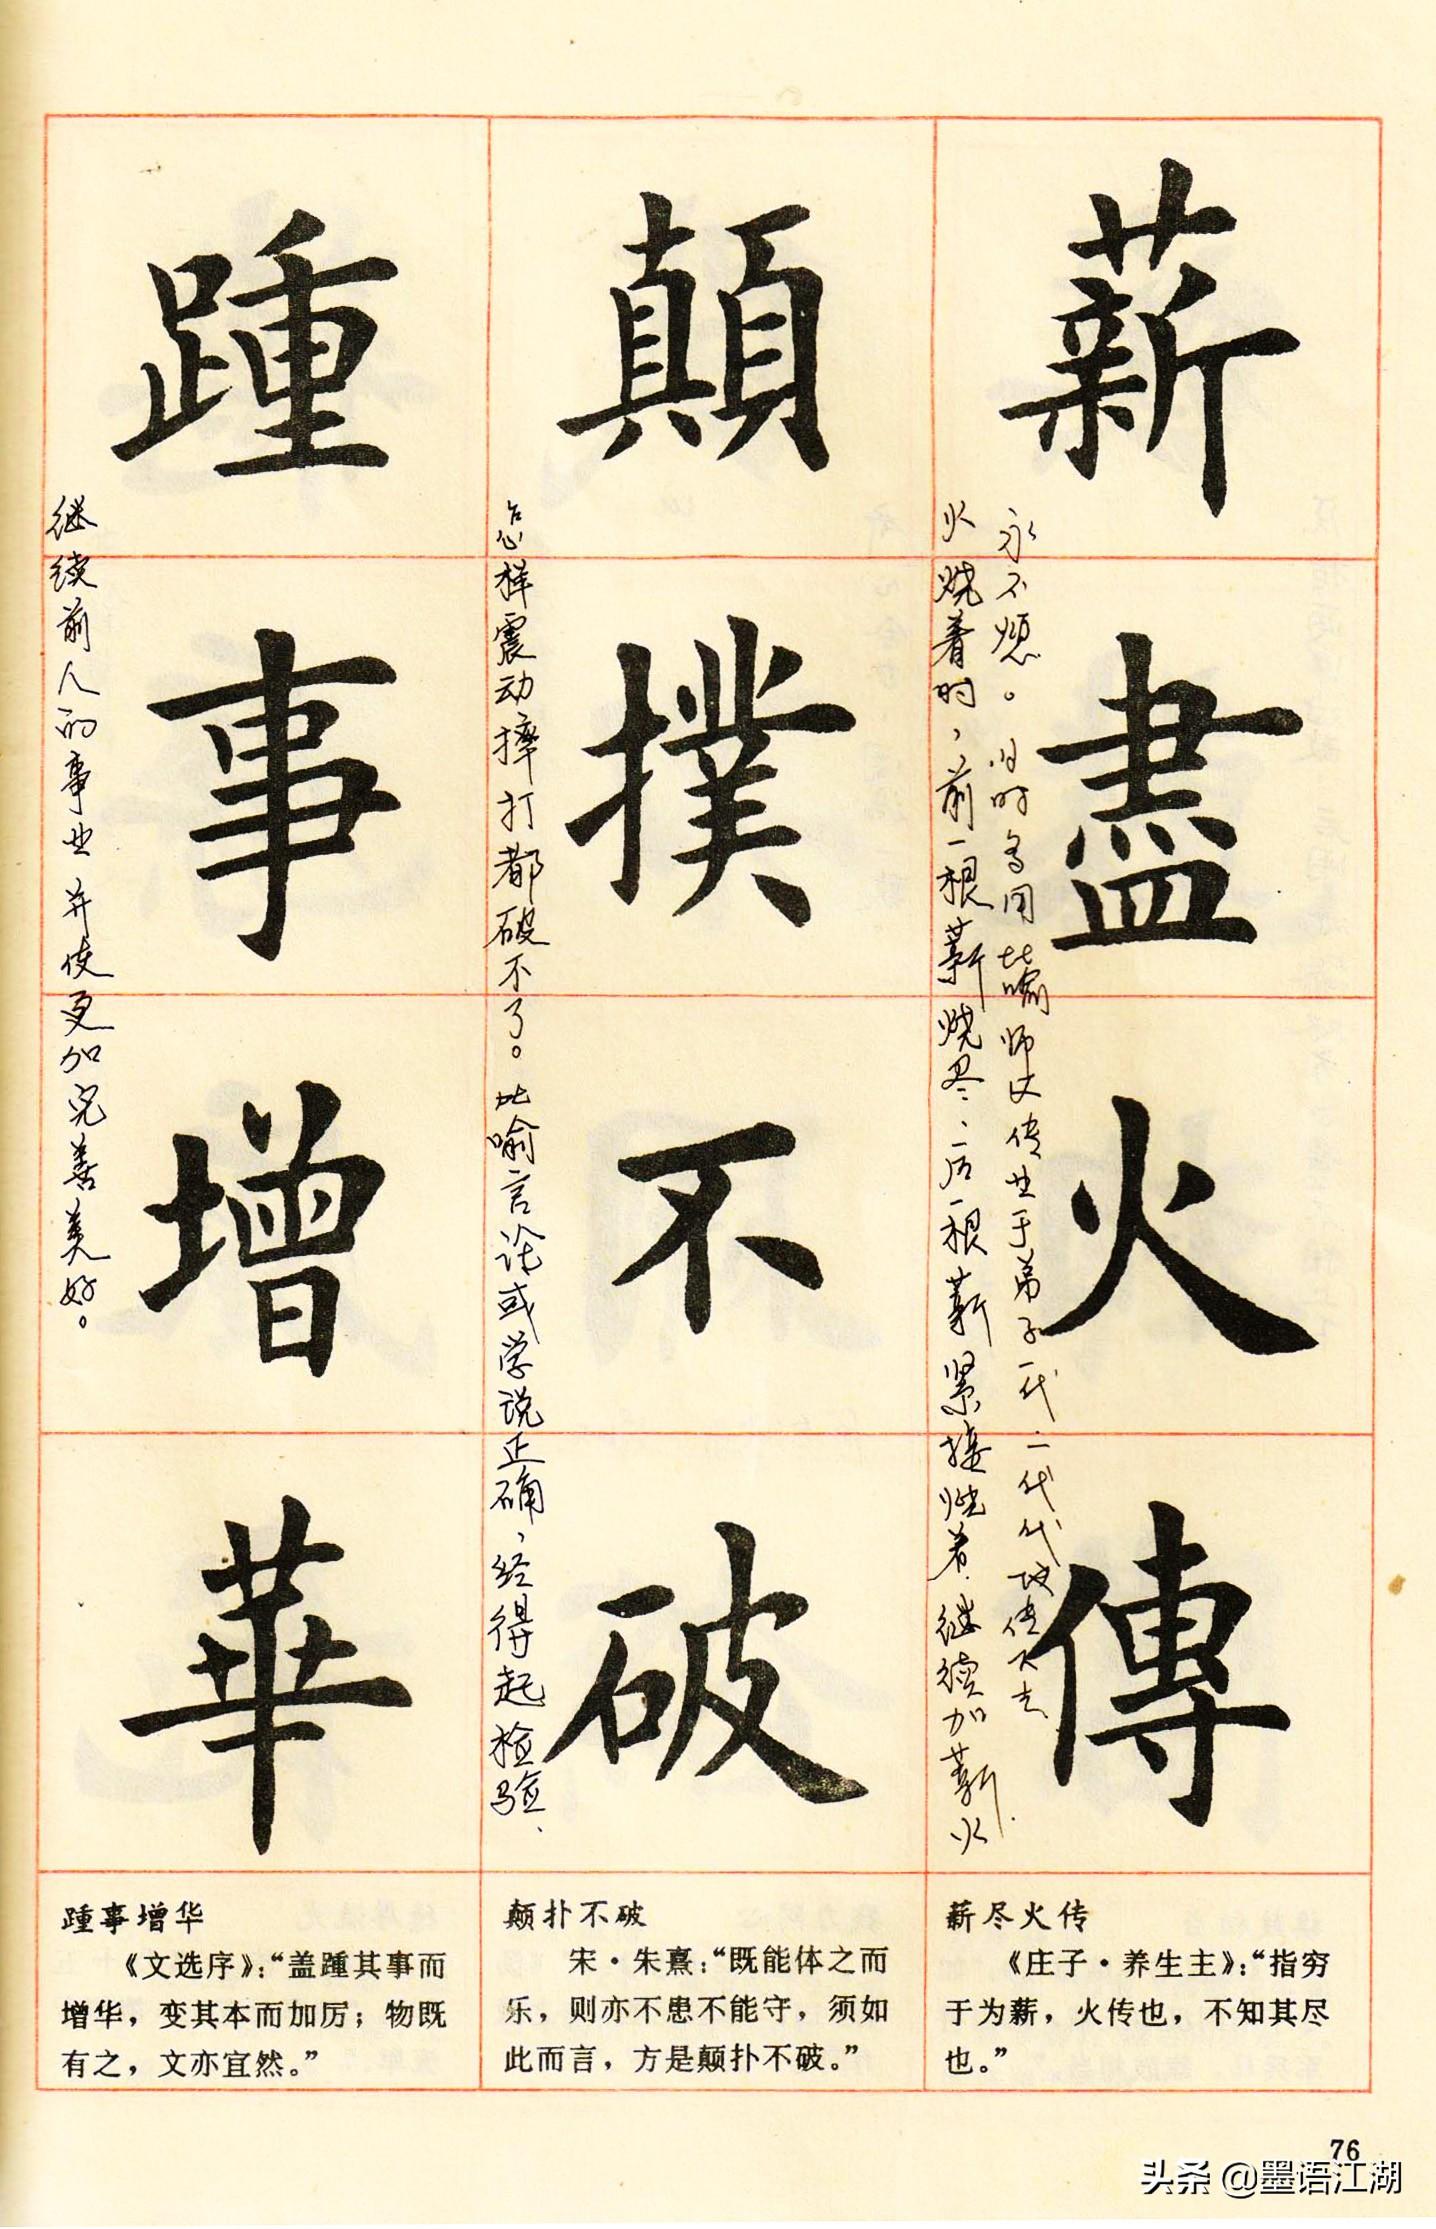 薪盡火傳
火烧着时，前一根薪烧尽、后一根薪紧接烧着、继续加薪火
永不熄。旧时多用比喻师父传业于弟子一代一代代故传下去
顛撲不破
怎样震动摔打都破不了。比喻言论或学说正确，经得起检验、
踵事增華
继续前人的事业并使更加完善美好。
薪尽火传
《庄子·养生主》：“指穷
于为薪，火传也，不知其尽
也。”
颠扑不破
宋·朱熹：“既能体之而
乐，则亦不患不能守，须如
此而言，方是颠扑不破。”
踵事增华
《文选序》：“盖踵其事而
增华，变其本而加厉；物既
有之，文亦宜然。”
76
头条 @墨语江湖